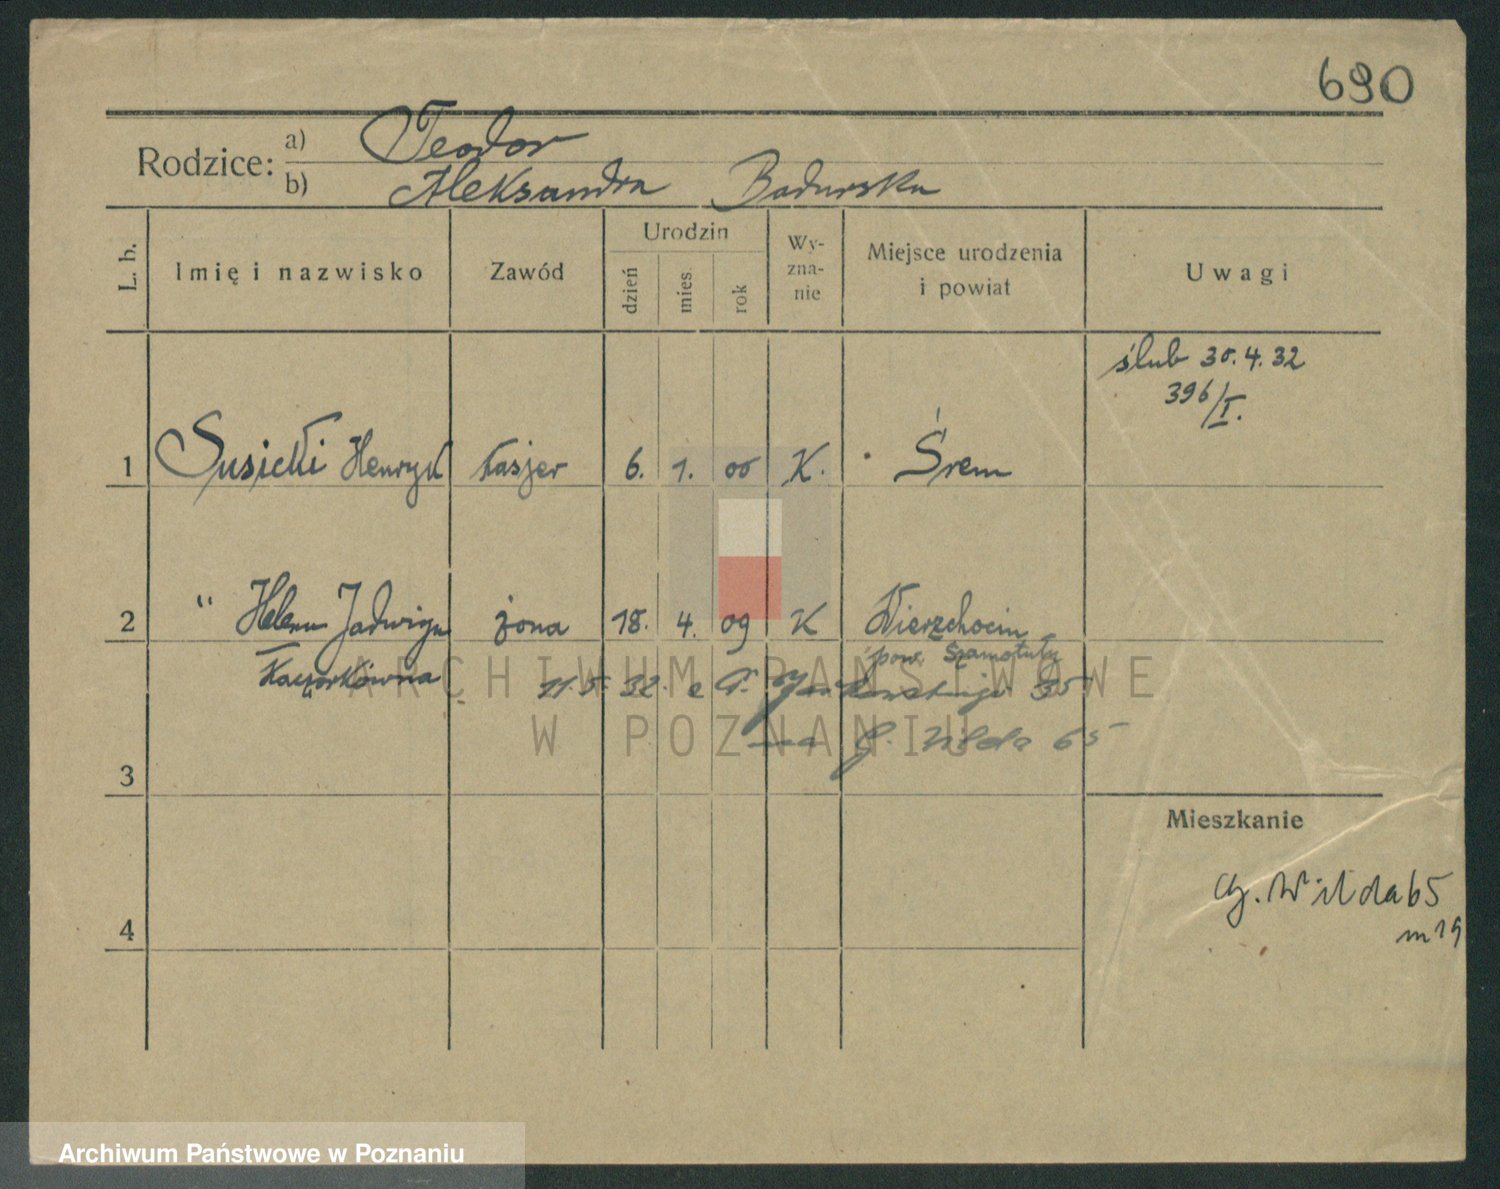 690
Rodzice: a) Teodor
b) Aleksandra Badurska
L. b.
Imię i nazwisko
Zawód
Urodzin
dzień
mies.
rok
Wy-
zna-
nie
Miejsce urodzenia
i powiat
Uwagi
ślub 30.4.32
396/I.
1 Susicki Henryk kasjer 6. 1. 00 K. Śrem
2 " Helena Jadwiga żona 18. 4. 09 K Wierzchocin
pow. Szamotuły
Kaczorkówna
11.5.32 35
na G. Wilda 65
3
Mieszkanie
G. Wilda 65
m 19
4
ARCHIWUM PAŃSTWOWE
W POZNANIU
Archiwum Państwowe w Poznaniu